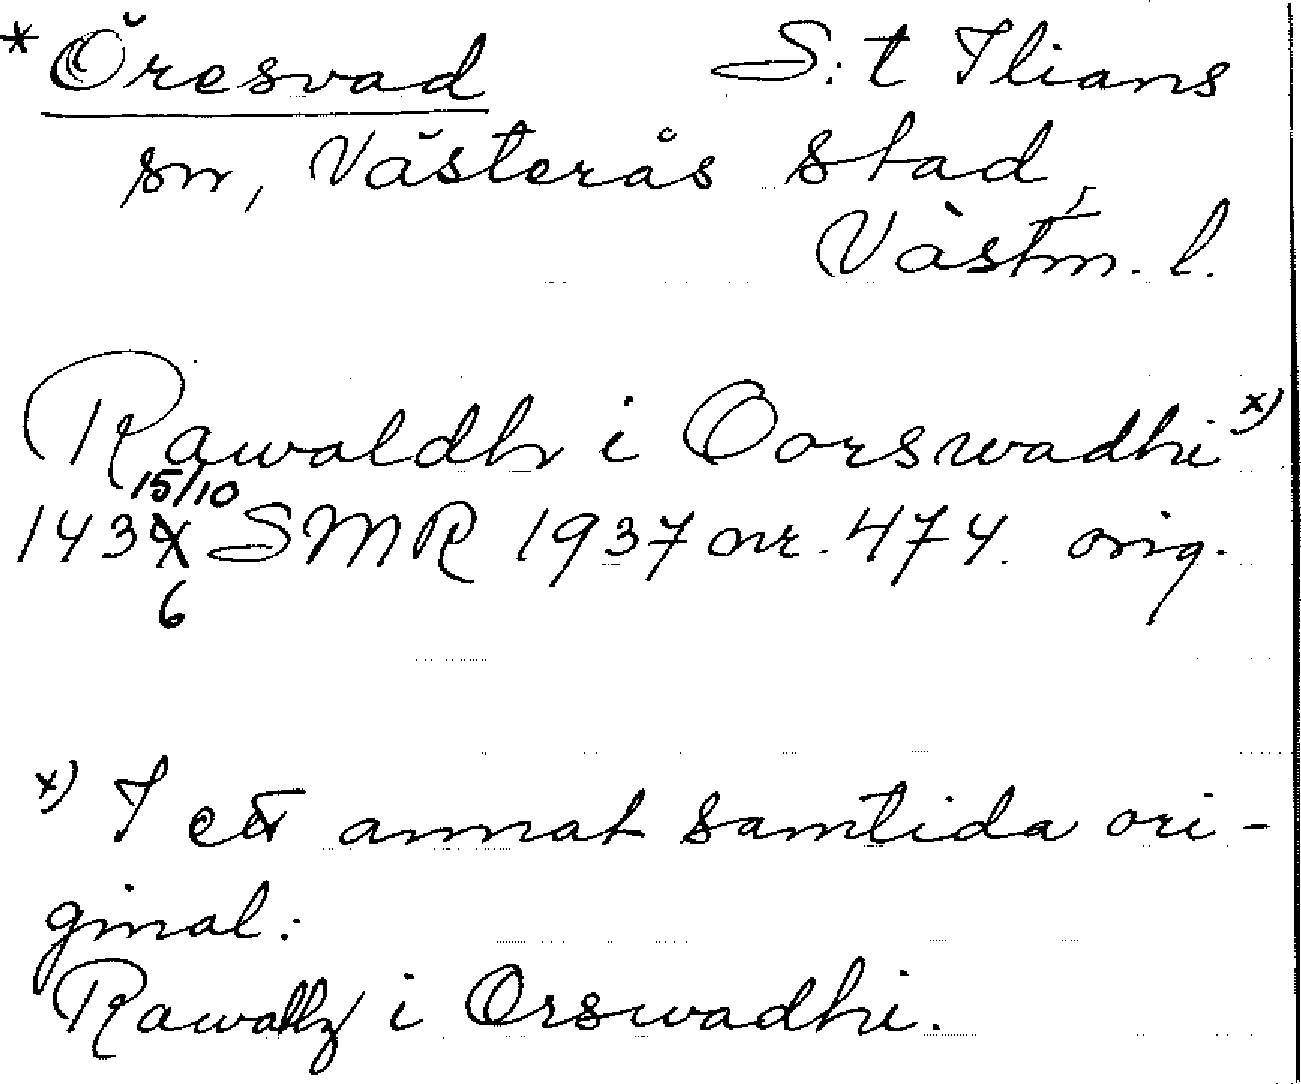 *Öresvad S:t Ilians
sn, Västerås stad,
Västm. l.
Rawaldh i Oorswadhi x)
15/10
1436 SMR 1937 nr. 474. orig.
x) I ett annat samtida ori-
ginal:
i Orswadhi.